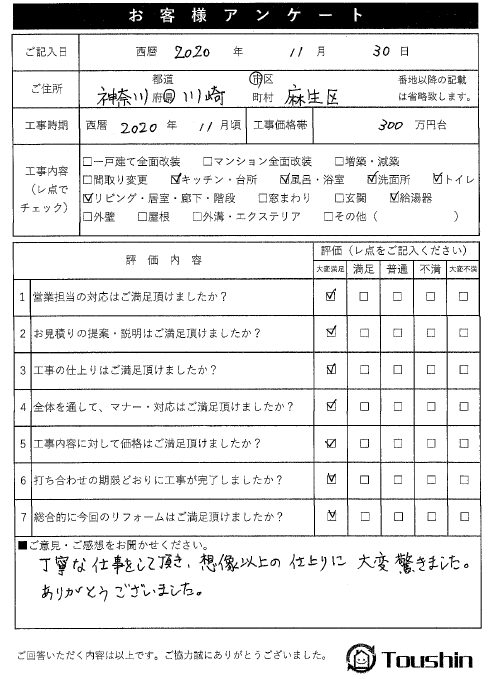 お客様アンケート
ご記入日 西暦 2020 年 11 月 30 日
ご住所 神奈川 都道府県 川崎 市区町村 麻生区 番地以降の記載は省略致します。
工事時期 西暦 2020 年 11 月頃 工事価格帯 300 万円台
工事内容（レ点でチェック）
□一戸建て全面改装 □マンション全面改装 □増築・減築
□間取り変更 ☑キッチン・台所 ☑風呂・浴室 ☑洗面所 ☑トイレ
☑リビング・居室・廊下・階段 □窓まわり □玄関 ☑給湯器
□外壁 □屋根 □外溝・エクステリア □その他（ ）
評価内容 評価（レ点をご記入ください）
大変満足 満足 普通 不満 大変不満
1 営業担当の対応はご満足頂けましたか？ ☑ □ □ □ □
2 お見積りの提案・説明はご満足頂けましたか？ ☑ □ □ □ □
3 工事の仕上りはご満足頂けましたか？ ☑ □ □ □ □
4 全体を通して、マナー・対応はご満足頂けましたか？ ☑ □ □ □ □
5 工事内容に対して価格はご満足頂けましたか？ ☑ □ □ □ □
6 打ち合わせの期限どおりに工事が完了しましたか？ ☑ □ □ □ □
7 総合的に今回のリフォームはご満足頂けましたか？ ☑ □ □ □ □
■ご意見・ご感想をお聞かせください。
丁寧な仕事をして頂き、想像以上の仕上りに大変驚きました。
ありがとうございました。
ご回答いただく内容は以上です。ご協力誠にありがとうございました。
Toushin